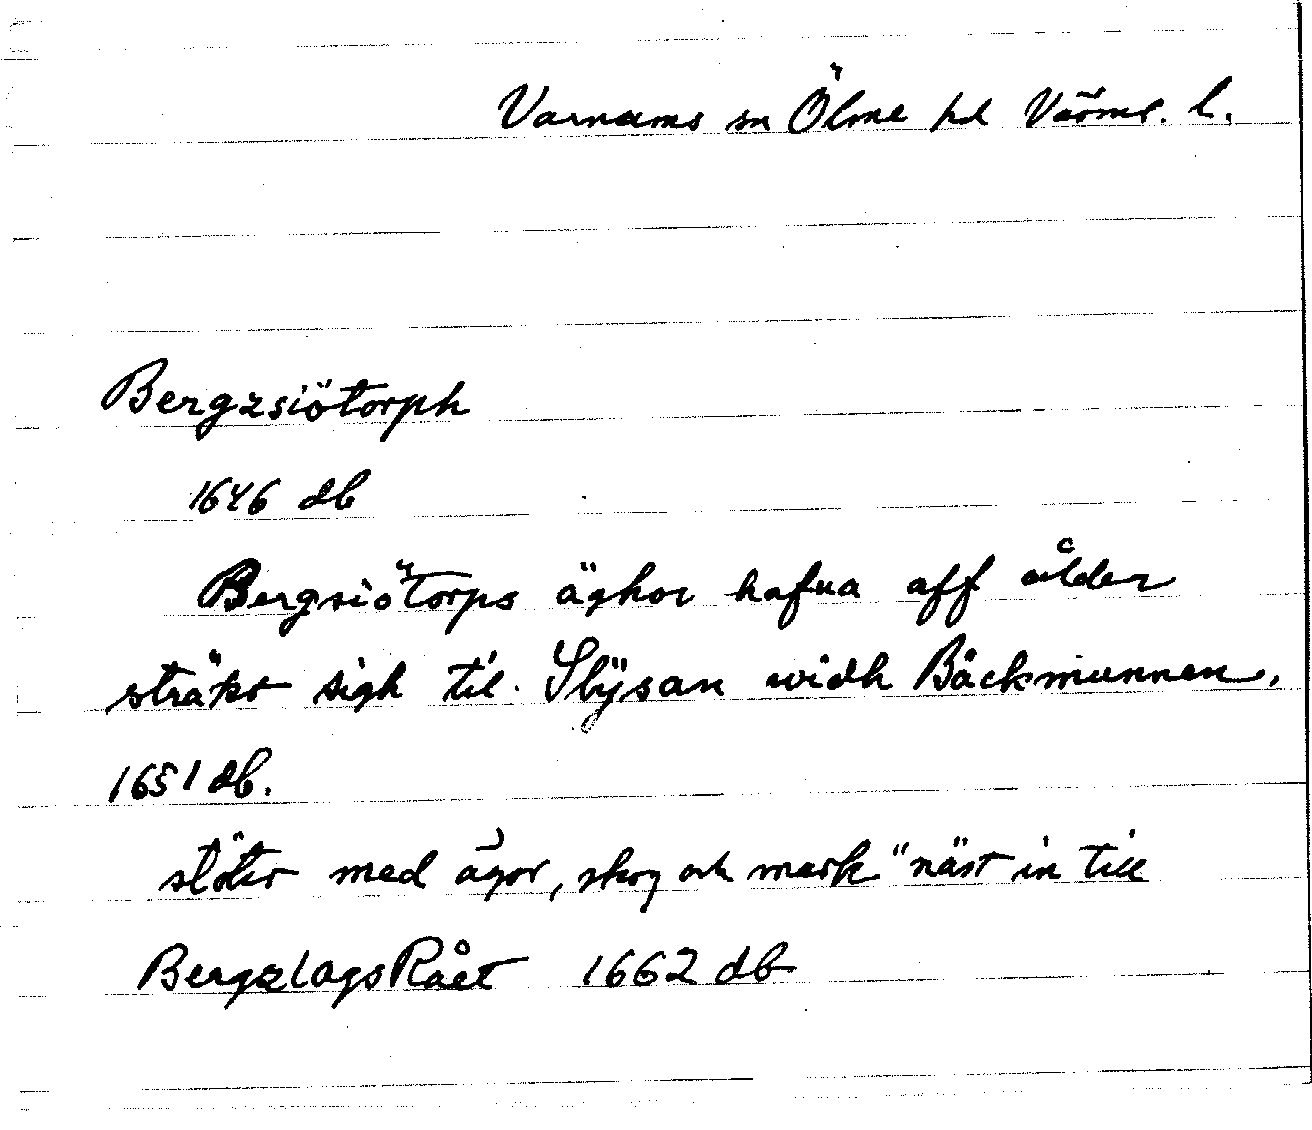 Varnums sn Ölme hd Värml. l.
Bergzsiötorph
1646 db
Bergsiötorps äghor hafua aff ålder
sträkt sigh til Slÿsan widh Bäckmunnen.
1651 db.
stöter med ägor, skog och mark "näst in till
BergzlagsRået 1662 db